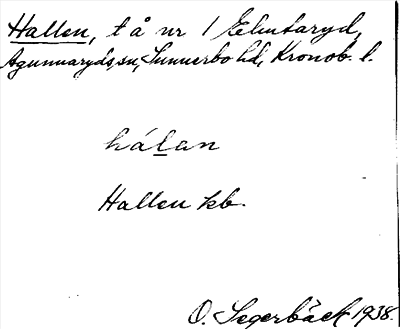 Hallen, t å nr 1 Elmtaryd,
Agunnaryds sn, Sunnerbo hd, Kronob. l.
hálan
Hallen kb.
O. Segerbäck 1938.